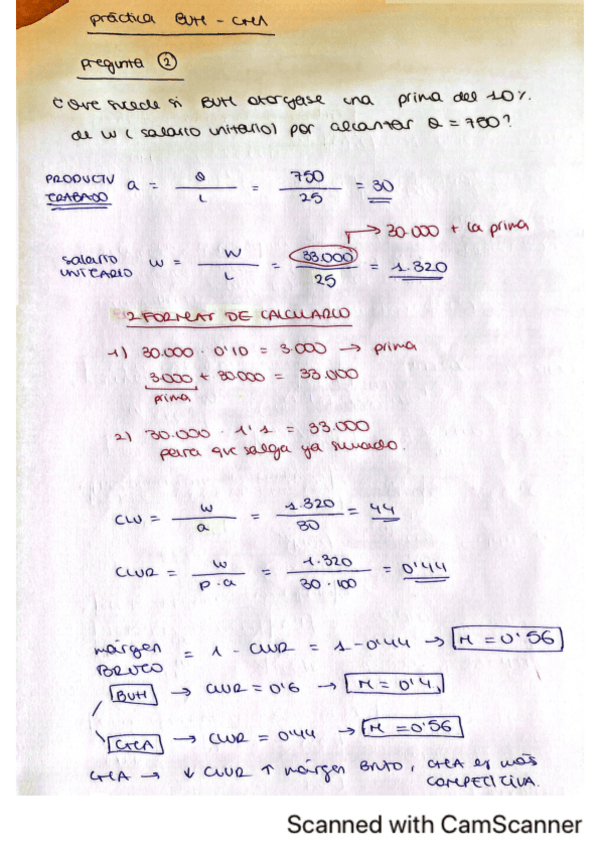 práctica BUH - CHEA
pregunta ②
¿Que sucede si BUH otorgase una prima del 10%
de w (salario unitario) por alcanzar Q = 750?
PRODUCTIV
TRABAJO a = Q / L = 750 / 25 = 30
→ 30.000 + la prima
SALARIO
UNITARIO w = W / L = 33.000 / 25 = 1.320
2 FORMAS DE CALCULARLO
1) 30.000 · 0'10 = 3.000 → prima
3.000 + 30.000 = 33.000
prima
2) 30.000 · 1'1 = 33.000
para que salga ya sumado.
CLU = w / a = 1.320 / 30 = 44
CLUR = w / p·a = 1.320 / 30·100 = 0'44
márgen
BRUTO = 1 - CLUR = 1 - 0'44 → M = 0'56
BUH → CLUR = 0'6 → M = 0'4
CHEA → CLUR = 0'44 → M = 0'56
CHEA → ↓ CLUR ↑ márgen BRUTO, CHEA es más
COMPETITIVA.
Scanned with CamScanner